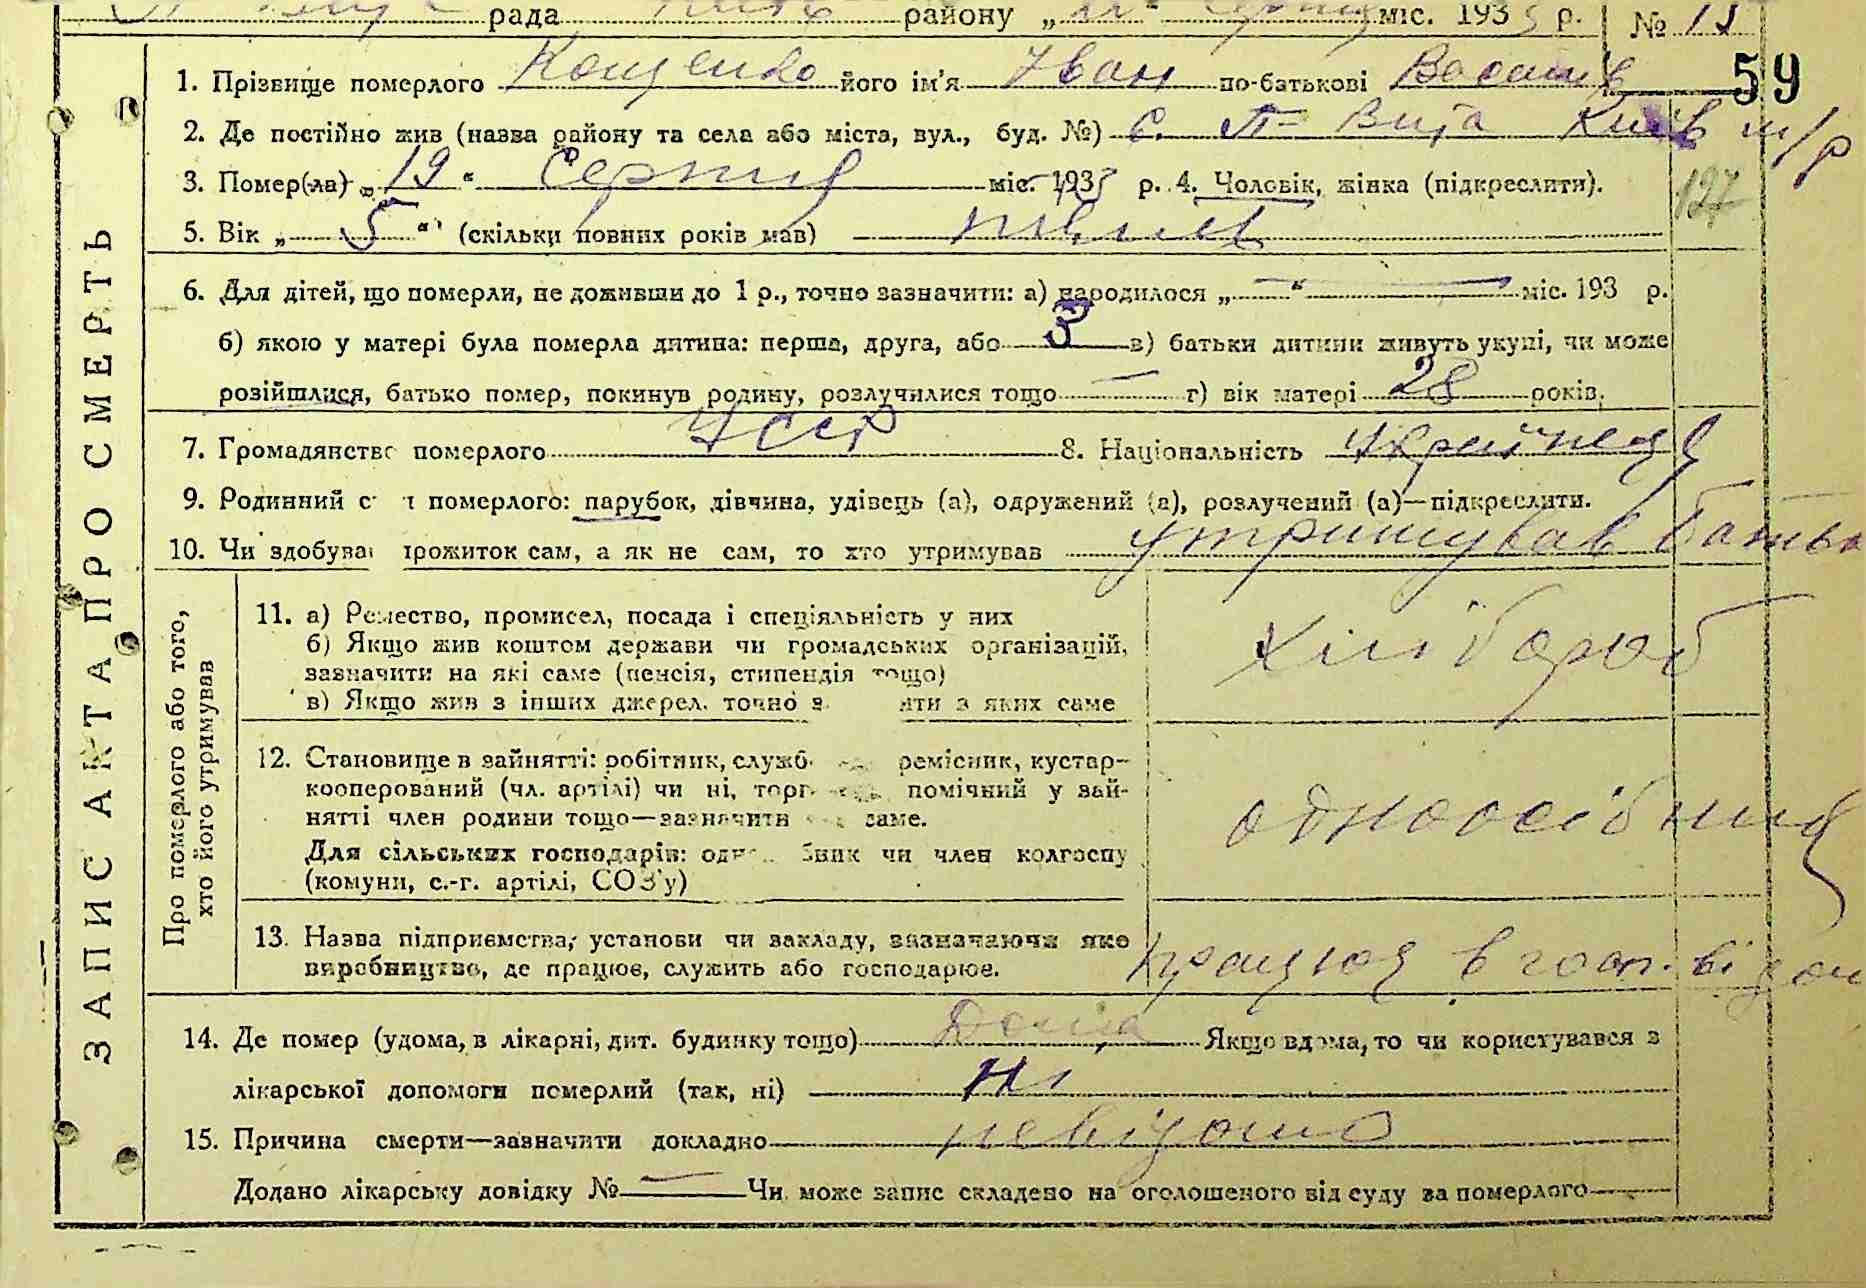 рада району „ міс. 193 р. № 15
1. Прізвище померлого Кощенко його ім'я Іван по-батькові Васильв
59
2. Де постійно жив (назва району та села або міста, вул., буд. №) с. П-Вита Київ м/р
3. Помер(ла) „19“ Серпня міс. 1933 р. 4. Чоловік, жінка (підкреслити).
127
5. Вік „5“ (скільки повних років мав)
6. Для дітей, що померли, не доживши до 1 р., точно зазначити: а) народилося „—“ — міс. 193 р.
б) якою у матері була померла дитина: перша, друга, або 3 в) батьки дитини живуть укупі, чи може
розійшлися, батько помер, покинув родину, розлучилися тощо — г) вік матері 28 років.
7. Громадянство померлого УСРР 8. Національність Українець
9. Родинний с т померлого: парубок, дівчина, удівець (а), одружений (а), розлучений (а)—підкреслити.
10. Чи здобував прожиток сам, а як не сам, то хто утримував утримував батько
ЗАПИС АКТА ПРО СМЕРТЬ
Про померлого або того,
хто його утримував
11. а) Ремество, промисел, посада і спеціяльність у них
б) Якщо жив коштом держави чи громадських організацій,
зазначити на які саме (пенсія, стипендія тощо)
в) Якщо жив з інших джерел, точно з яти з яких саме
хлібороб
12. Становище в зайнятті: робітник, служб ремісник, кустар-
кооперований (чл. артілі) чи ні, торг помічний у зай-
нятті член родини тощо—зазначити саме.
Для сільських господарів: одноосібник чи член колгоспу
(комуни, с.-г. артілі, СОЗ'у)
одноосібник
13. Назва підприємства, установи чи закладу, зазначаючи яке
виробництво, де працює, служить або господарює.
працює в госп.
14. Де помер (удома, в лікарні, дит. будинку тощо) Дома Якщо вдома, то чи користувався з
лікарської допомоги померлий (так, ні) Ні
15. Причина смерти—зазначити докладно невідома
Додано лікарську довідку № — Чи може запис складено на оголошеного від суду за померлого —